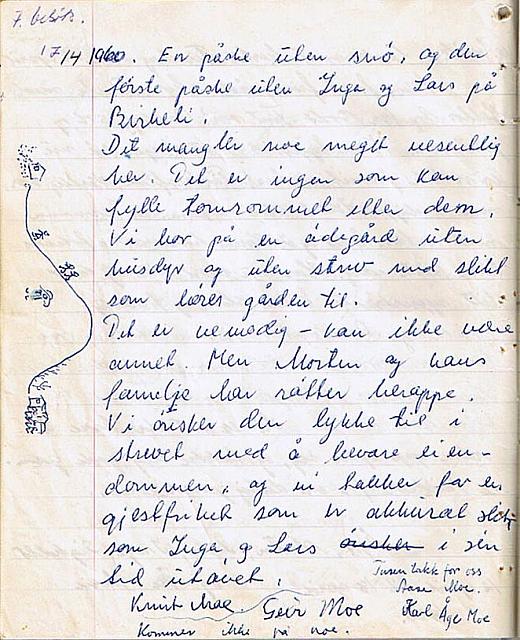 7. besøk.
17/4 1960. En påske uten snø, og den
første påske uten Inga og Lars på
Birkeli.
Det mangler noe meget vesentlig
her. Det er ingen som kan
fylle tomrommet etter dem.
Vi bor på en ødegård uten
husdyr og uten strev med slikt
som hører gården til.
Det er vemodig – kan ikke være
annet. Men Morten og hans
familje har røtter heroppe.
Vi ønsker dem lykke til i
strevet med å bevare eien-
dommen, og vi takker for en
gjestfrihet som er akkurat slik
som Inga og Lars ønsket i sin
tid utøvet.
Tusen takk for oss
Aase Moe.
Knut Moe Geir Moe Karl Åge Moe
Kommer ikke på noe.